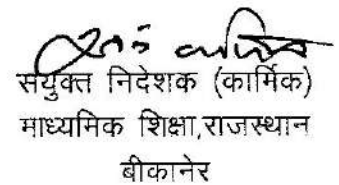 संयुक्त निदेशक (कार्मिक)
माध्यमिक शिक्षा,राजस्थान
बीकानेर